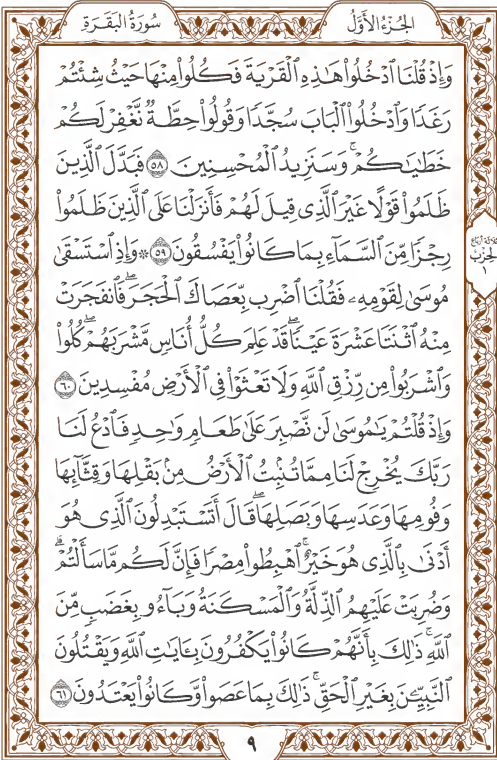 الجُزْءُ الأَوَّلُ
سُورَةُ البَقَرَةِ
وَإِذْ قُلْنَا ٱدْخُلُوا۟ هَٰذِهِ ٱلْقَرْيَةَ فَكُلُوا۟ مِنْهَا حَيْثُ شِئْتُمْ
رَغَدًا وَٱدْخُلُوا۟ ٱلْبَابَ سُجَّدًا وَقُولُوا۟ حِطَّةٌ نَّغْفِرْ لَكُمْ
خَطَٰيَٰكُمْ ۚ وَسَنَزِيدُ ٱلْمُحْسِنِينَ ٥٨ فَبَدَّلَ ٱلَّذِينَ
ظَلَمُوا۟ قَوْلًا غَيْرَ ٱلَّذِى قِيلَ لَهُمْ فَأَنزَلْنَا عَلَى ٱلَّذِينَ ظَلَمُوا۟
رِجْزًا مِّنَ ٱلسَّمَآءِ بِمَا كَانُوا۟ يَفْسُقُونَ ٥٩ * وَإِذِ ٱسْتَسْقَىٰ
مُوسَىٰ لِقَوْمِهِۦ فَقُلْنَا ٱضْرِب بِّعَصَاكَ ٱلْحَجَرَ ۖ فَٱنفَجَرَتْ
مِنْهُ ٱثْنَتَا عَشْرَةَ عَيْنًا ۖ قَدْ عَلِمَ كُلُّ أُنَاسٍ مَّشْرَبَهُمْ ۖ كُلُوا۟
وَٱشْرَبُوا۟ مِن رِّزْقِ ٱللَّهِ وَلَا تَعْثَوْا۟ فِى ٱلْأَرْضِ مُفْسِدِينَ ٦٠
وَإِذْ قُلْتُمْ يَٰمُوسَىٰ لَن نَّصْبِرَ عَلَىٰ طَعَامٍ وَٰحِدٍ فَٱدْعُ لَنَا
رَبَّكَ يُخْرِجْ لَنَا مِمَّا تُنۢبِتُ ٱلْأَرْضُ مِنۢ بَقْلِهَا وَقِثَّآئِهَا
وَفُومِهَا وَعَدَسِهَا وَبَصَلِهَا ۖ قَالَ أَتَسْتَبْدِلُونَ ٱلَّذِى هُوَ
أَدْنَىٰ بِٱلَّذِى هُوَ خَيْرٌ ۚ ٱهْبِطُوا۟ مِصْرًا فَإِنَّ لَكُم مَّا سَأَلْتُمْ ۗ
وَضُرِبَتْ عَلَيْهِمُ ٱلذِّلَّةُ وَٱلْمَسْكَنَةُ وَبَآءُو بِغَضَبٍ مِّنَ
ٱللَّهِ ۗ ذَٰلِكَ بِأَنَّهُمْ كَانُوا۟ يَكْفُرُونَ بِـَٔايَٰتِ ٱللَّهِ وَيَقْتُلُونَ
ٱلنَّبِيِّـۧنَ بِغَيْرِ ٱلْحَقِّ ۗ ذَٰلِكَ بِمَا عَصَوا۟ وَّكَانُوا۟ يَعْتَدُونَ ٦١
ثلاثة أرباع
الحزب
١
٩